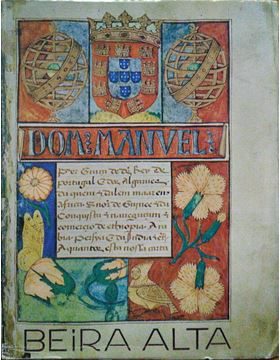 DOM: MANVEL:
Per Graça de ds Rey de
portugal & dos Algarues
da quem & dalem maar em
africa & nor de Guynee & da
Conquista & nauegaçam &
comercio de ethiopia Ara
bia Persya & da India &c
A quantos esta nossa carta
BEIRA ALTA